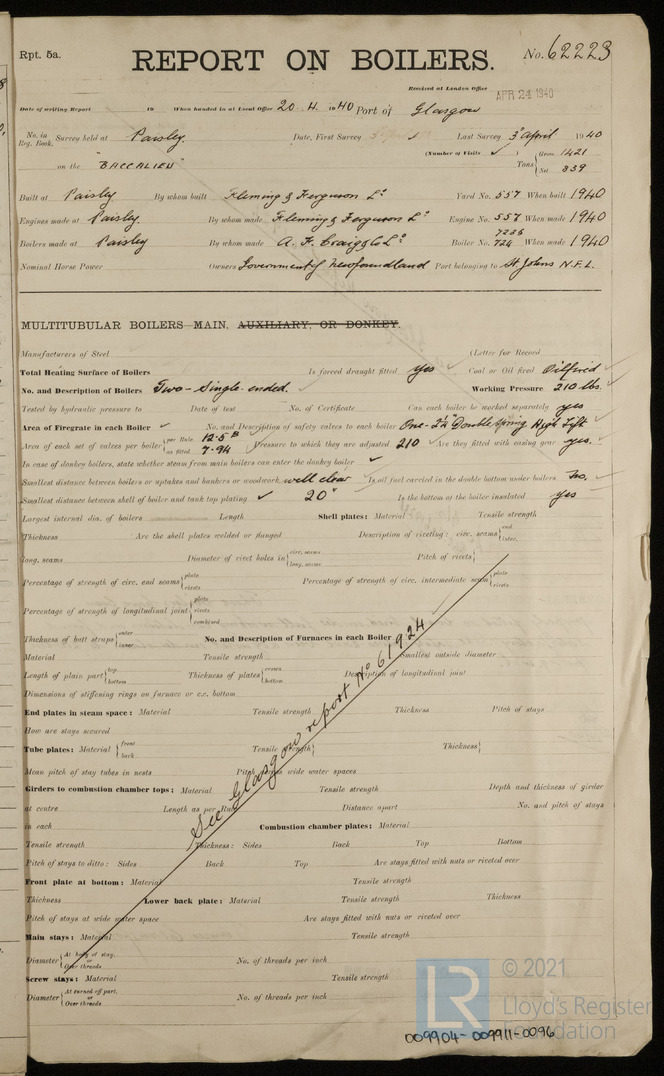 Rpt. 5a.
REPORT ON BOILERS.
No. 62223
Received at London Office APR 24 1940
Date of writing Report 19 When handed in at Local Office 20. 4. 1940 Port of Glasgow
No. in Reg. Book. Survey held at Paisley. Date, First Survey Last Survey 3rd April 1940
(Number of Visits ✓) Gross 1421
on the "BACCALIEU" Tons Net 839
Built at Paisley By whom built Fleming & Ferguson Ld. Yard No. 557 When built 1940
Engines made at Paisley. By whom made Fleming & Ferguson Ld. Engine No. 557 When made 1940
Boilers made at Paisley By whom made A. F. Craig & Co Ld. Boiler No. 724 When made 1940
Nominal Horse Power Owners Government of Newfoundland Port belonging to St Johns N.F.L.
MULTITUBULAR BOILERS MAIN, AUXILIARY, OR DONKEY.
Manufacturers of Steel (Letter for Record
Total Heating Surface of Boilers Is forced draught fitted yes Coal or Oil fired Oilfired
No. and Description of Boilers Two - Single-ended. Working Pressure 210 lbs.
Tested by hydraulic pressure to Date of test No. of Certificate Can each boiler be worked separately yes
Area of Firegrate in each Boiler ✓ No. and Description of safety valves to each boiler One - 2½" Double Spring High Lift
Area of each set of valves per boiler per Rule 12.5 as fitted 7.94 Pressure to which they are adjusted 210 Are they fitted with easing gear yes.
In case of donkey boilers, state whether steam from main boilers can enter the donkey boiler ✓
Smallest distance between boilers or uptakes and bunkers or woodwork well clear Is oil fuel carried in the double bottom under boilers No.
Smallest distance between shell of boiler and tank top plating ✓ 20" Is the bottom of the boiler insulated yes
Largest internal dia. of boilers Length Shell plates: Material Tensile strength
Thickness Are the shell plates welded or flanged Description of riveting: circ. seams end inter.
long. seams Diameter of rivet holes in circ. seams long. seams Pitch of rivets
Percentage of strength of circ. end seams plate rivets Percentage of strength of circ. intermediate seam plate rivets
Percentage of strength of longitudinal joint plate rivets combined
Thickness of butt straps outer inner No. and Description of Furnaces in each Boiler
Material Tensile strength Smallest outside diameter
Length of plain part top bottom Thickness of plates crown bottom Description of longitudinal joint
Dimensions of stiffening rings on furnace or c.c. bottom
End plates in steam space: Material Tensile strength Thickness Pitch of stays
How are stays secured
Tube plates: Material front back Tensile strength Thickness
Mean pitch of stay tubes in nests Pitch across wide water spaces
Girders to combustion chamber tops: Material Tensile strength Depth and thickness of girder
at centre Length as per Rule Distance apart No. and pitch of stays
in each Combustion chamber plates: Material
Tensile strength Thickness: Sides Back Top Bottom
Pitch of stays to ditto: Sides Back Top Are stays fitted with nuts or riveted over
Front plate at bottom: Material Tensile strength
Thickness Lower back plate: Material Tensile strength Thickness
Pitch of stays at wide water space Are stays fitted with nuts or riveted over
Main stays: Material Tensile strength
Diameter At body of stay, or Over threads No. of threads per inch
Screw stays: Material Tensile strength
Diameter At turned off part, or Over threads No. of threads per inch
See Glasgow report No 61924
LR © 2021
Lloyd's Register
Foundation
009904-009911-0096